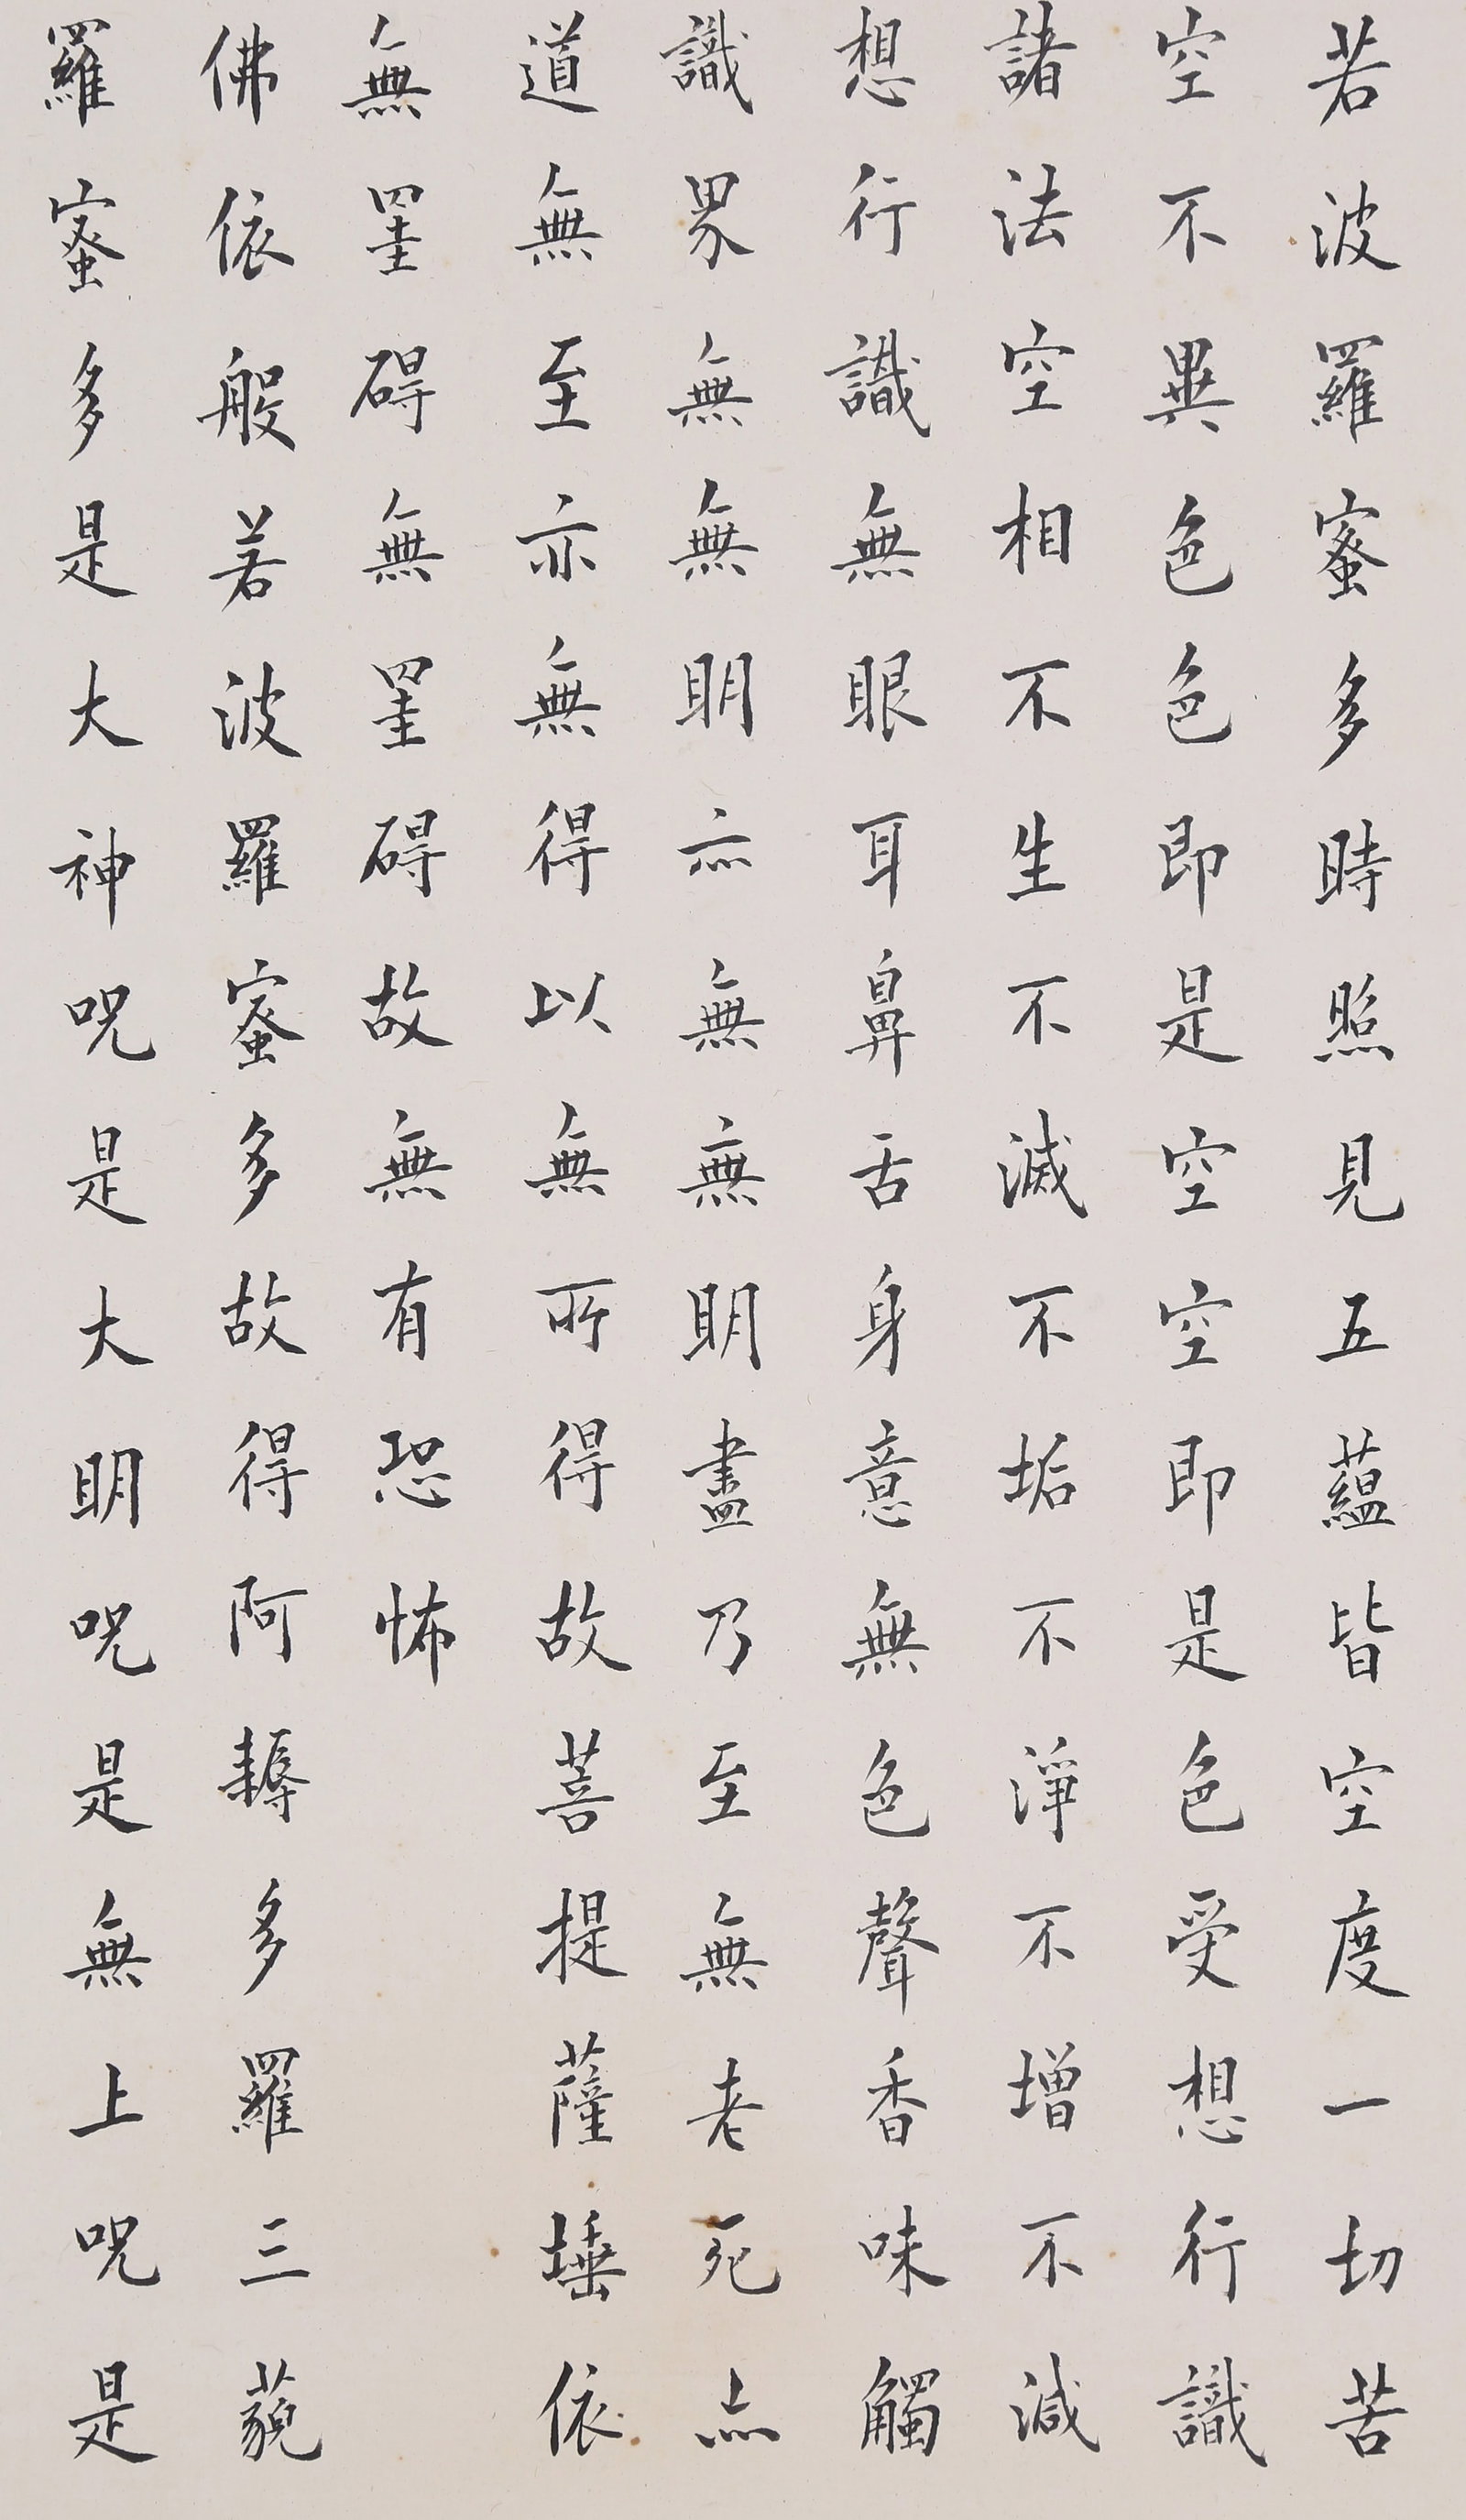 若波羅蜜多時照見五蘊皆空度一切苦
空不異色色即是空空即是色受想行識
諸法空相不生不滅不垢不淨不增不減
想行識無眼耳鼻舌身意無色聲香味觸
識界無無明亦無無明盡乃至無老死亦
道無至亦無得以無所得故菩提薩埵依
無罣碍無罣碍故無有恐怖
佛依般若波羅蜜多故得阿耨多羅三藐
羅蜜多是大神呪是大明呪是無上呪是